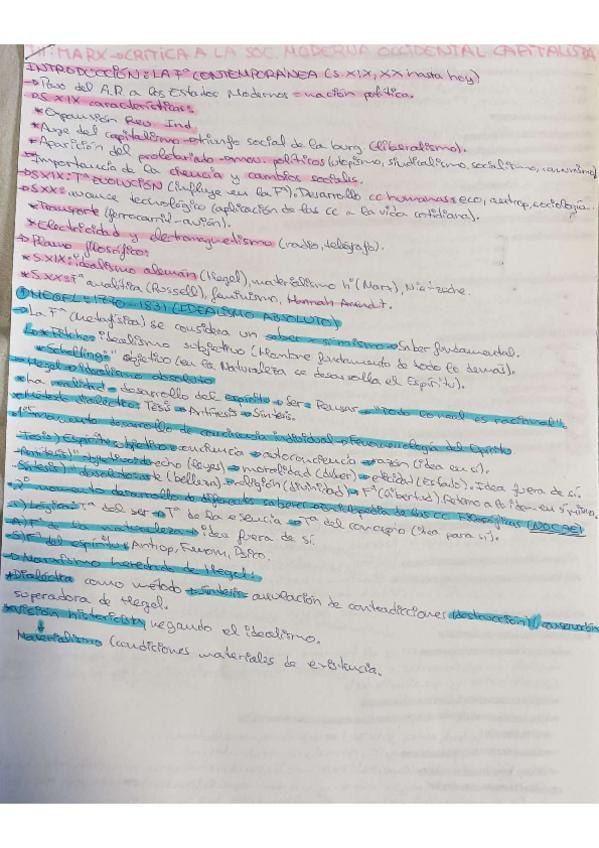 MARX → CRÍTICA A LA SOC. MODERNA OCCIDENTAL CAPITALISTA
INTRODUCCIÓN: LA Fª CONTEMPORÁNEA (S. XIX, XX hasta hoy)
→ Paso del A.R a los Estados Modernos = nación política.
→ S XIX características:
* Expansión Rev. Ind.
* Auge del capitalismo → triunfo social de la burg (liberalismo).
* Aparición del proletariado → mov. políticos (utopismo, sindicalismo, socialismo,
* Importancia de la ciencia y cambios sociales.
→ S XIX: Tª EVOLUCIÓN (influye en la Fª), Desarrollo cc humanas: eco, antrop, sociología.
→ S XX: avance tecnológico (aplicación de las cc a la vida cotidiana).
* Transporte (ferrocarril - avión).
* Electricidad y electromagnetismo (radio, telégrafo).
→ Plano filosófico:
* S. XIX: idealismo alemán (Hegel), materialismo hº (Marx), Nietzsche.
* S. XX: Fª analítica (Russell), feminismo, Hannah Arendt.
① HEGEL: 1770 - 1831 (IDEALISMO ABSOLUTO)
→ La Fª (metafísica) se considera un saber x sí mismo → Saber fundamental.
Fichte: idealismo subjetivo (Hombre fundamento de todo lo demás).
* Schelling: " objetivo (en la Naturaleza se desarrolla el Espíritu).
→ Hegel → idealismo absoluto
* ha realidad → desarrollo del espíritu → Ser = Pensar → "Todo lo real es racional".
* Método dialéctico: Tesis → Antítesis → Síntesis.
1er momento desarrollo de conciencia individual → Fenomenología del Espíritu
Tesis) Espíritu subjetivo: conciencia → autoconciencia → razón (idea en sí).
Antítesis) " objetivo: derecho (leyes) → moralidad (deber) → eticidad (Estado). Idea fuera de sí.
Síntesis) " absoluto: arte (belleza) → religión (divinidad) → Fª (libertad)
2º momento desarrollo de diferentes saberes: enciclopedia de las cc Filosóficas
1) Lógica: Tª del ser → Tª de la esencia → Tª del concepto (idea para sí).
2) Fª de la naturaleza → idea fuera de sí.
3) Fª del espíritu: Antrop, Fenom, Psico.
→ Marxismo heredado de Hegel:
* Dialéctica como método → Síntesis: anulación de contradicciones (destrucción) / conservación
superadora de Hegel.
* visión historicista negando el idealismo.
Materialismo (condiciones materiales de existencia.